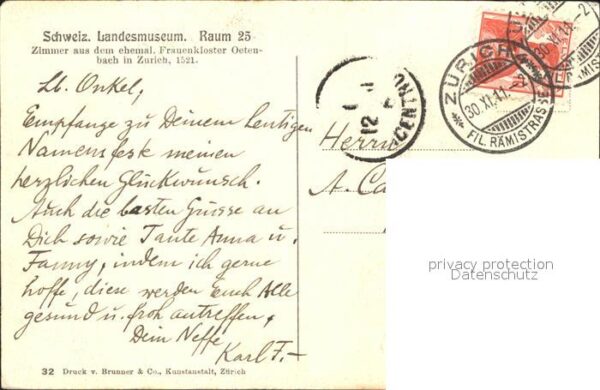 Schweiz. Landesmuseum. Raum 25
Zimmer aus dem ehemal. Frauenkloster Oeten-
bach in Zurich, 1521.
Lb. Onkel,
Empfange zu Deinem heutigen
Namensfeste meinen
herzlichen Glückwunsch.
Auch die besten Grüsse an
Dich sowie Tante Anna u.
Fanny, indem ich gerne
hoffe, diese werden Euch Alle
gesund u. froh antreffen.
Dein Neffe
Karl F.-
32 Druck v. Brunner & Co., Kunstanstalt, Zürich
Herrn
A. Ca
ZÜRICH
30.XI.11.-2
FIL. RÄMISTRASSE
30.XI.11.-2
RÄMISTR
12
CENTRO
privacy protection
Datenschutz